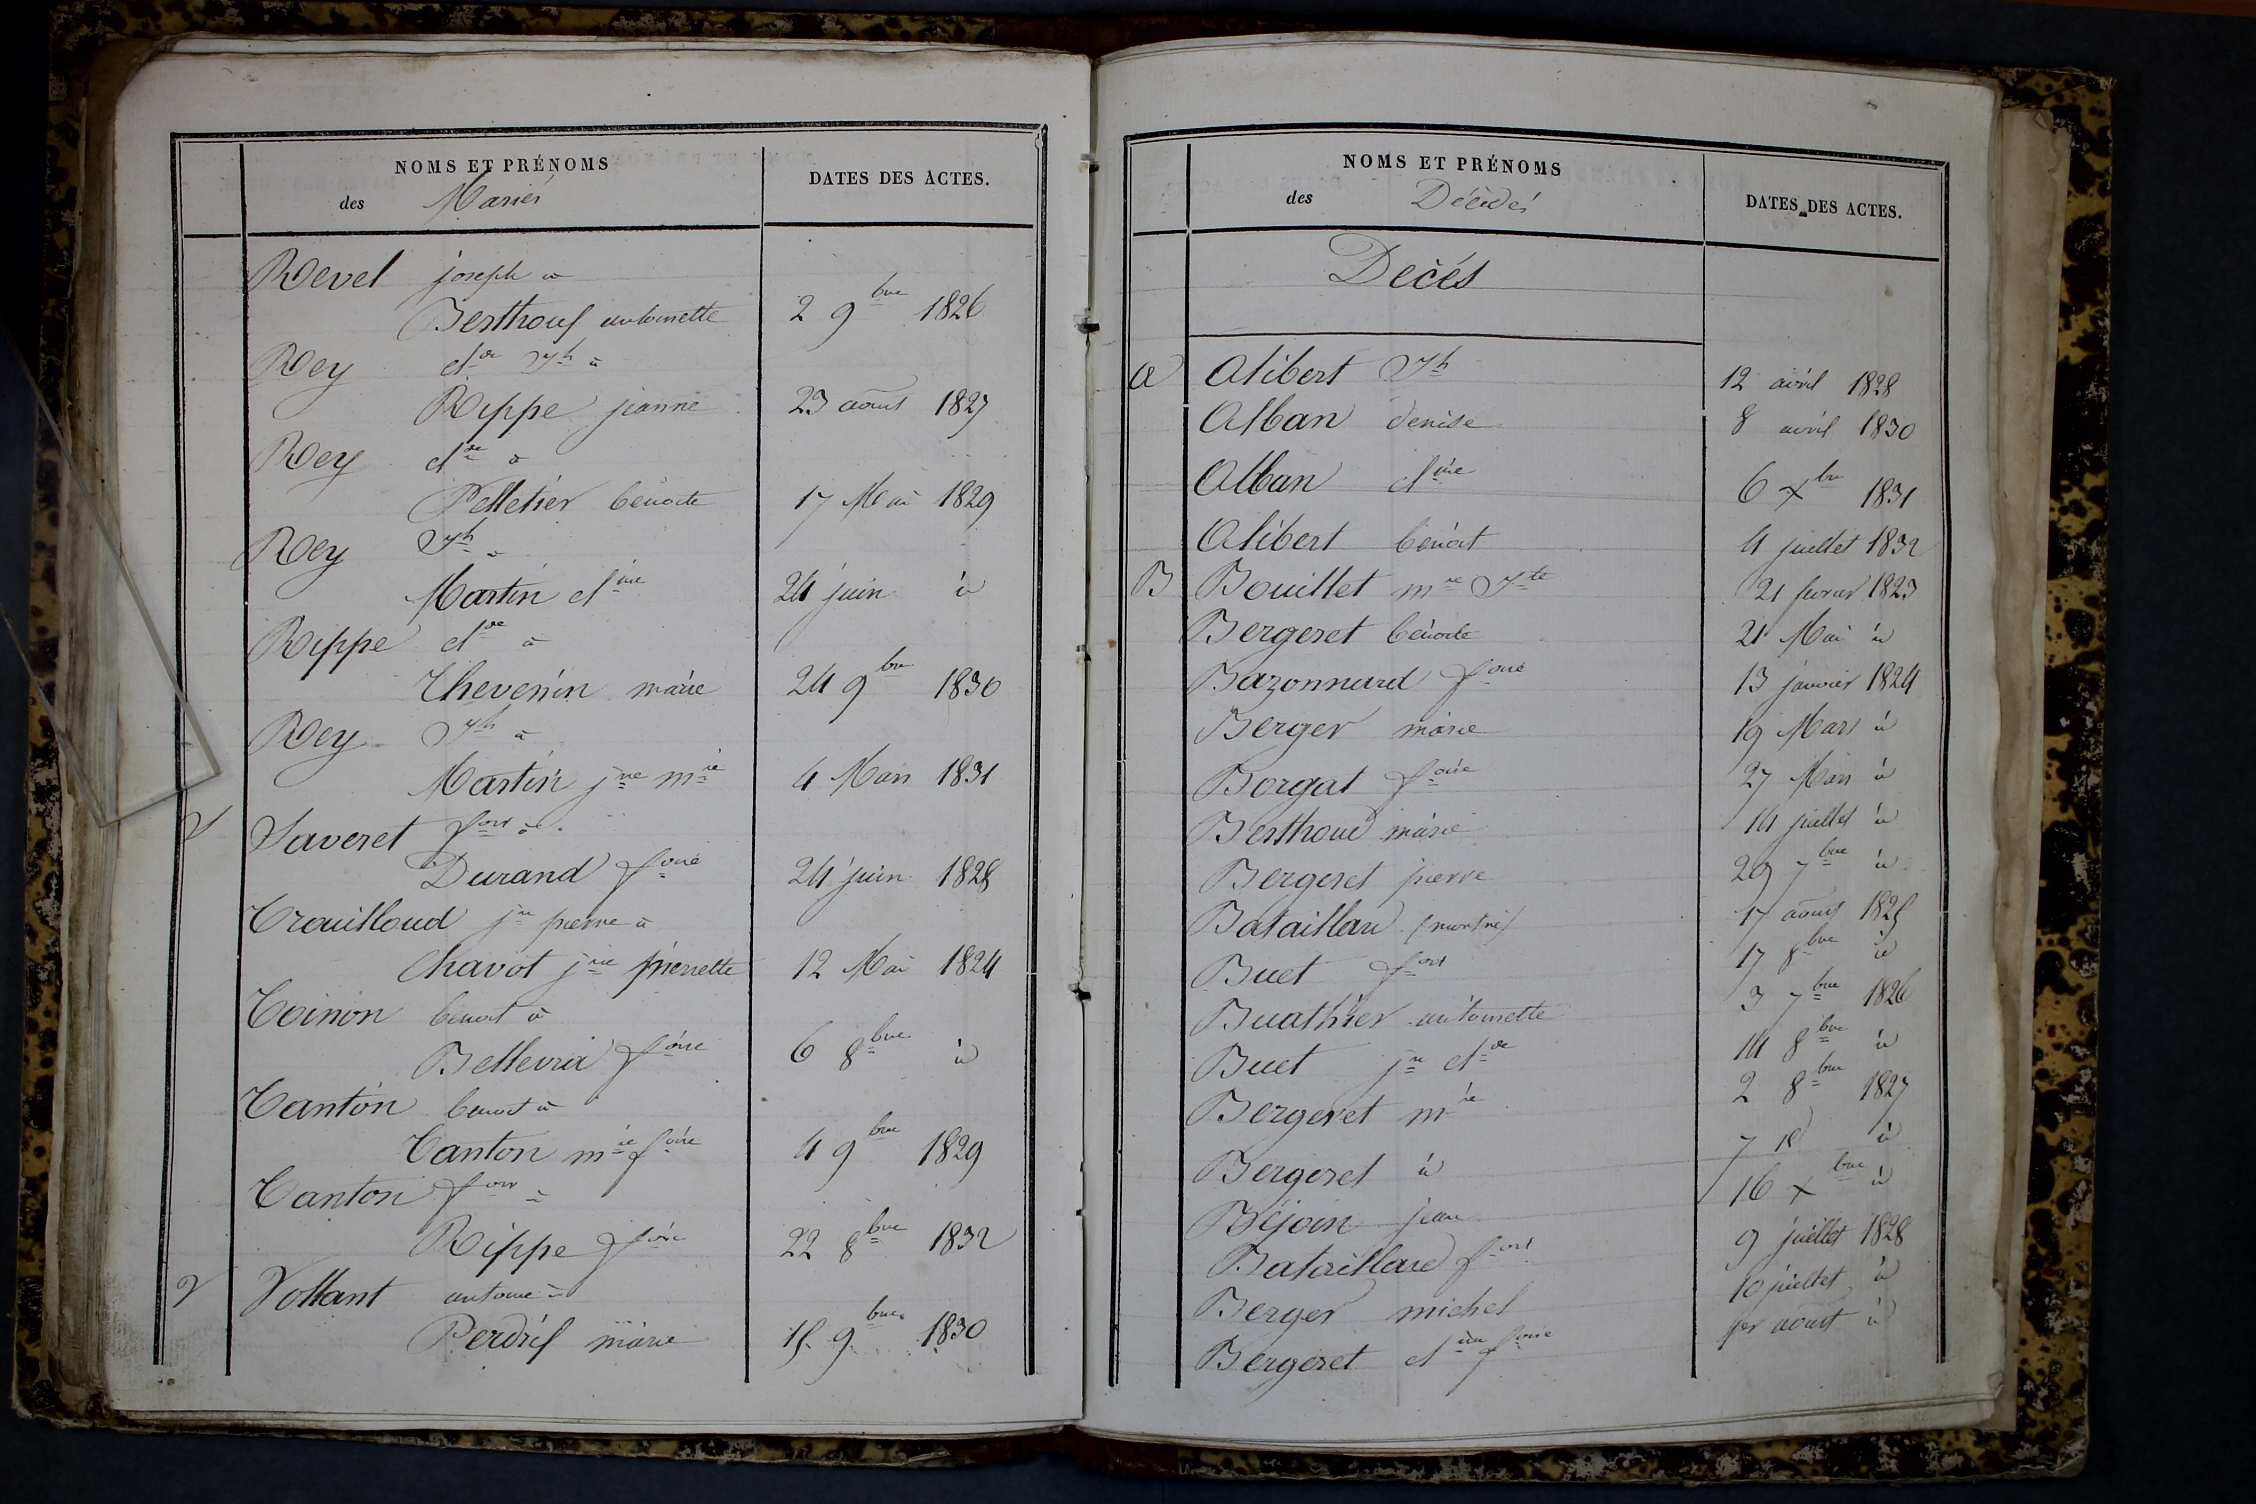 NOMS ET PRÉNOMS
des Mariés
DATES DES ACTES.
Revel joseph a
Berthouf antoinette 2 9bre 1826
Rey clde Jh a
Rippe jeanne 23 aout 1827
Rey clde a
Pelletier benoite 17 Mai 1829
Rey Jh a
Martin cline 24 juin id
Rippe clde a
Thevenin marie 24 9bre 1830
Rey Jh a
Martin jne mie 4 Mars 1831
S Saveret fois a
Durand foise 24 juin 1828
Trouilloud jn pierre a
Chavot jne pierrette 12 Mai 1824
Toinon benoit a
Bellevrai foise 6 8bre id
Tanton benoit a
Tanton mie foise 4 9bre 1829
Tanton fois a
Rippe foise 22 8bre 1832
V Vollant antoine a
Perdrif marie 15 9bre 1830
NOMS ET PRÉNOMS
des Décédés
DATES DES ACTES.
Decés
A Alibert Jh 12 avril 1828
Alban denise 8 avril 1830
Alban cline 6 Xbre 1831
Alibert benoit 4 juillet 1832
B Bouillet mie Jte 21 fevrier 1823
Bergeret benoite 21 Mai id
Bazonnard foise 13 janvier 1824
Berger marie 19 Mars id
Borgat foise 27 Mars id
Berthoud marie 14 juillet id
Bergeret pierre 29 7bre id
Bataillard (mort né) 17 aout 1825
Buet fois 17 8bre id
Buathier antoinette 3 7bre 1826
Buet jn clde 14 8bre id
Bergeret mie 2 8bre 1827
Bergeret id 7 id id
Béjoin jean 16 Xbre id
Bataillard fois 9 juillet 1828
Berger michel 10 juillet id
Bergeret cline foise 1er aout id